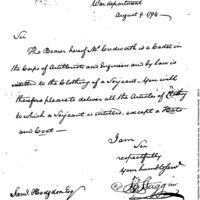 War department
August 9. 1794
Sir
The Bearer hereof Mr Ludworth is a Cadet in
the Corps of Artillerists and Engineers and by law is
entitled to the Clothing of a Serjeant. You will
therefore please to deliver all the Articles of
to which a Serjeant is entitled, except a
and Coat —
I am
Sir
respectfully
Your
Saml Hodgdon Esqr